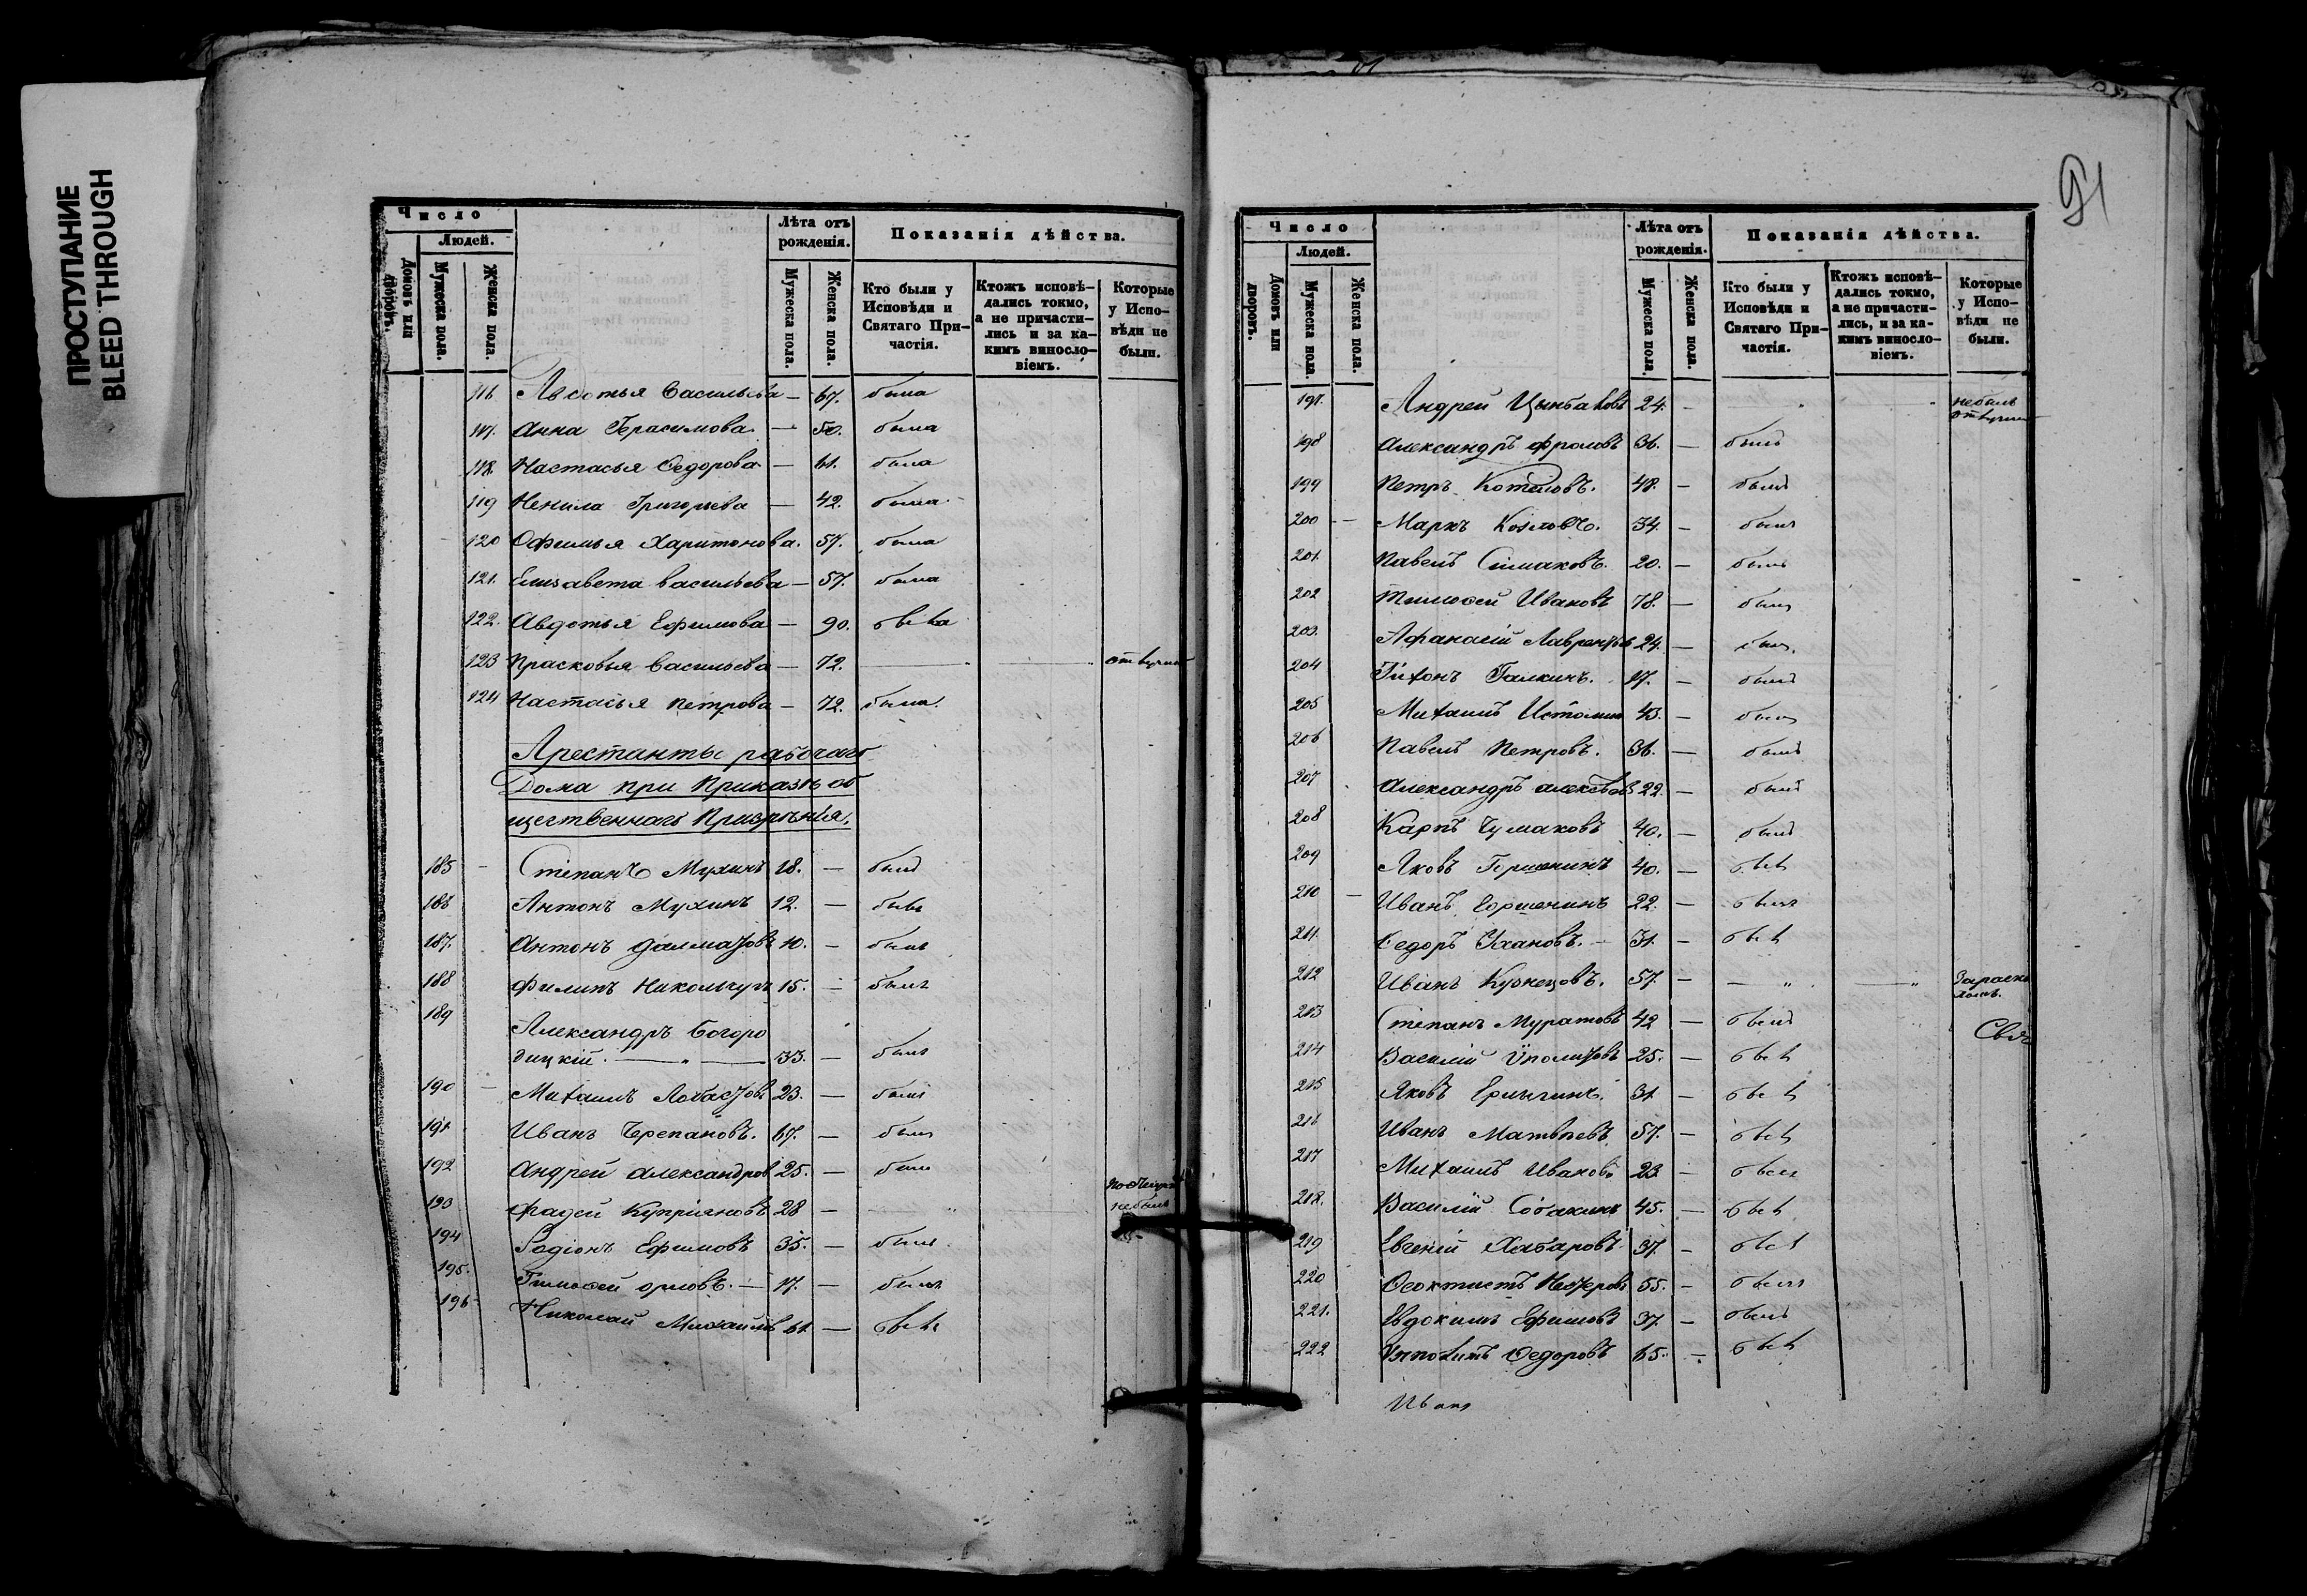 ПРОСТУПАНИЕ
BLEED THROUGH
Число
Людей.
Домовъ или дворовъ.
Мужеска пола.
Женска пола.
Лѣта отъ рожденія.
Мужеска пола.
Женска пола.
Показанія дѣйства.
Кто были у Исповѣди и Святаго Причастія.
Ктожъ исповѣдались токмо, а не причастились и за какимъ винословіемъ.
Которые у Исповѣди не были.
116 Авдотья Васильева — 67. была
117. Анна Герасимова — 50. была
118. Настасья Федорова — 61. была
119 Ненила Григорьева — 42. была
120 Офимья Харитонова. 57. была
121. Елизавета Васильева — 57. была
122. Авдотья Ефимова — 90. была
123 Прасковья Васильева — 72.
124 Настасья Петрова — 72. была.
Арестанты рабочаго
Дома при Приказѣ об
щественнаго Призрѣнія.
185 Степанъ Мухинъ 18. — былъ
186 Антонъ Мухинъ 12. — былъ
187. Антонъ Далматовъ 10. — былъ
188 Филипъ 15. — былъ
189 Александръ Богоро
дицкій. — 33. — былъ
190 Михаилъ 23. — былъ
191 Иванъ Черепановъ. 67. — былъ
192 Андрей Александров 25. — былъ
193 Фадей Купріяновъ 28 — небылъ
194 Родіонъ Ефимовъ 35. — былъ
195. Тимофей Орловъ. — 17. — былъ
196 Николай Михайлов 61 — былъ
91
Число
Людей.
Домовъ или дворовъ.
Мужеска пола.
Женска пола.
Лѣта отъ рожденія.
Мужеска пола.
Женска пола.
Показанія дѣйства.
Кто были у Исповѣди и Святаго Причастія.
Ктожъ исповѣдались токмо, а не причастились, и за какимъ винословіемъ.
Которые у Исповѣди не были.
197. Андрей Цынбаловъ 24. — небылъ
198 Александръ Фроловъ 36. — былъ
199 Петръ Котеловъ. 48. — былъ
200 Маркъ Козловъ. 34. — былъ
201. Павелъ Симаковъ. 20. — былъ
202 Тимофей Ивановъ 78. — былъ
203. Афанасій Лаврентьев 24. — былъ.
204 Тихонъ Галкинъ. 17. — былъ
205 Михаилъ Истомин 43. — былъ
206 Павелъ Петровъ. 36. — былъ
207 Александръ Алексѣевъ 22. — былъ
208 Карпъ Чумаковъ 40. — былъ
209 Яковъ Горшенинъ 40. — былъ
210 Иванъ Горшенинъ 22. — былъ
211. Федоръ Ухановъ. — 31. — былъ
212 Иванъ Кузнецовъ. 57. —
213 Степанъ Муратовъ 42 — былъ
214 Василій 25. — былъ
215 Яковъ 31 — былъ
216 Иванъ Матвѣевъ 57. — былъ
217 Михаилъ Ивановъ 23 — былъ
218. Василій Собакинъ 45. — былъ
219 Евгеній Хабаровъ 37. — былъ
220 Феоктистъ Нестеровъ 55. — былъ
221. Евдокимъ Ефимовъ 37. — былъ
222 Федоровъ 65. — былъ
Иванъ